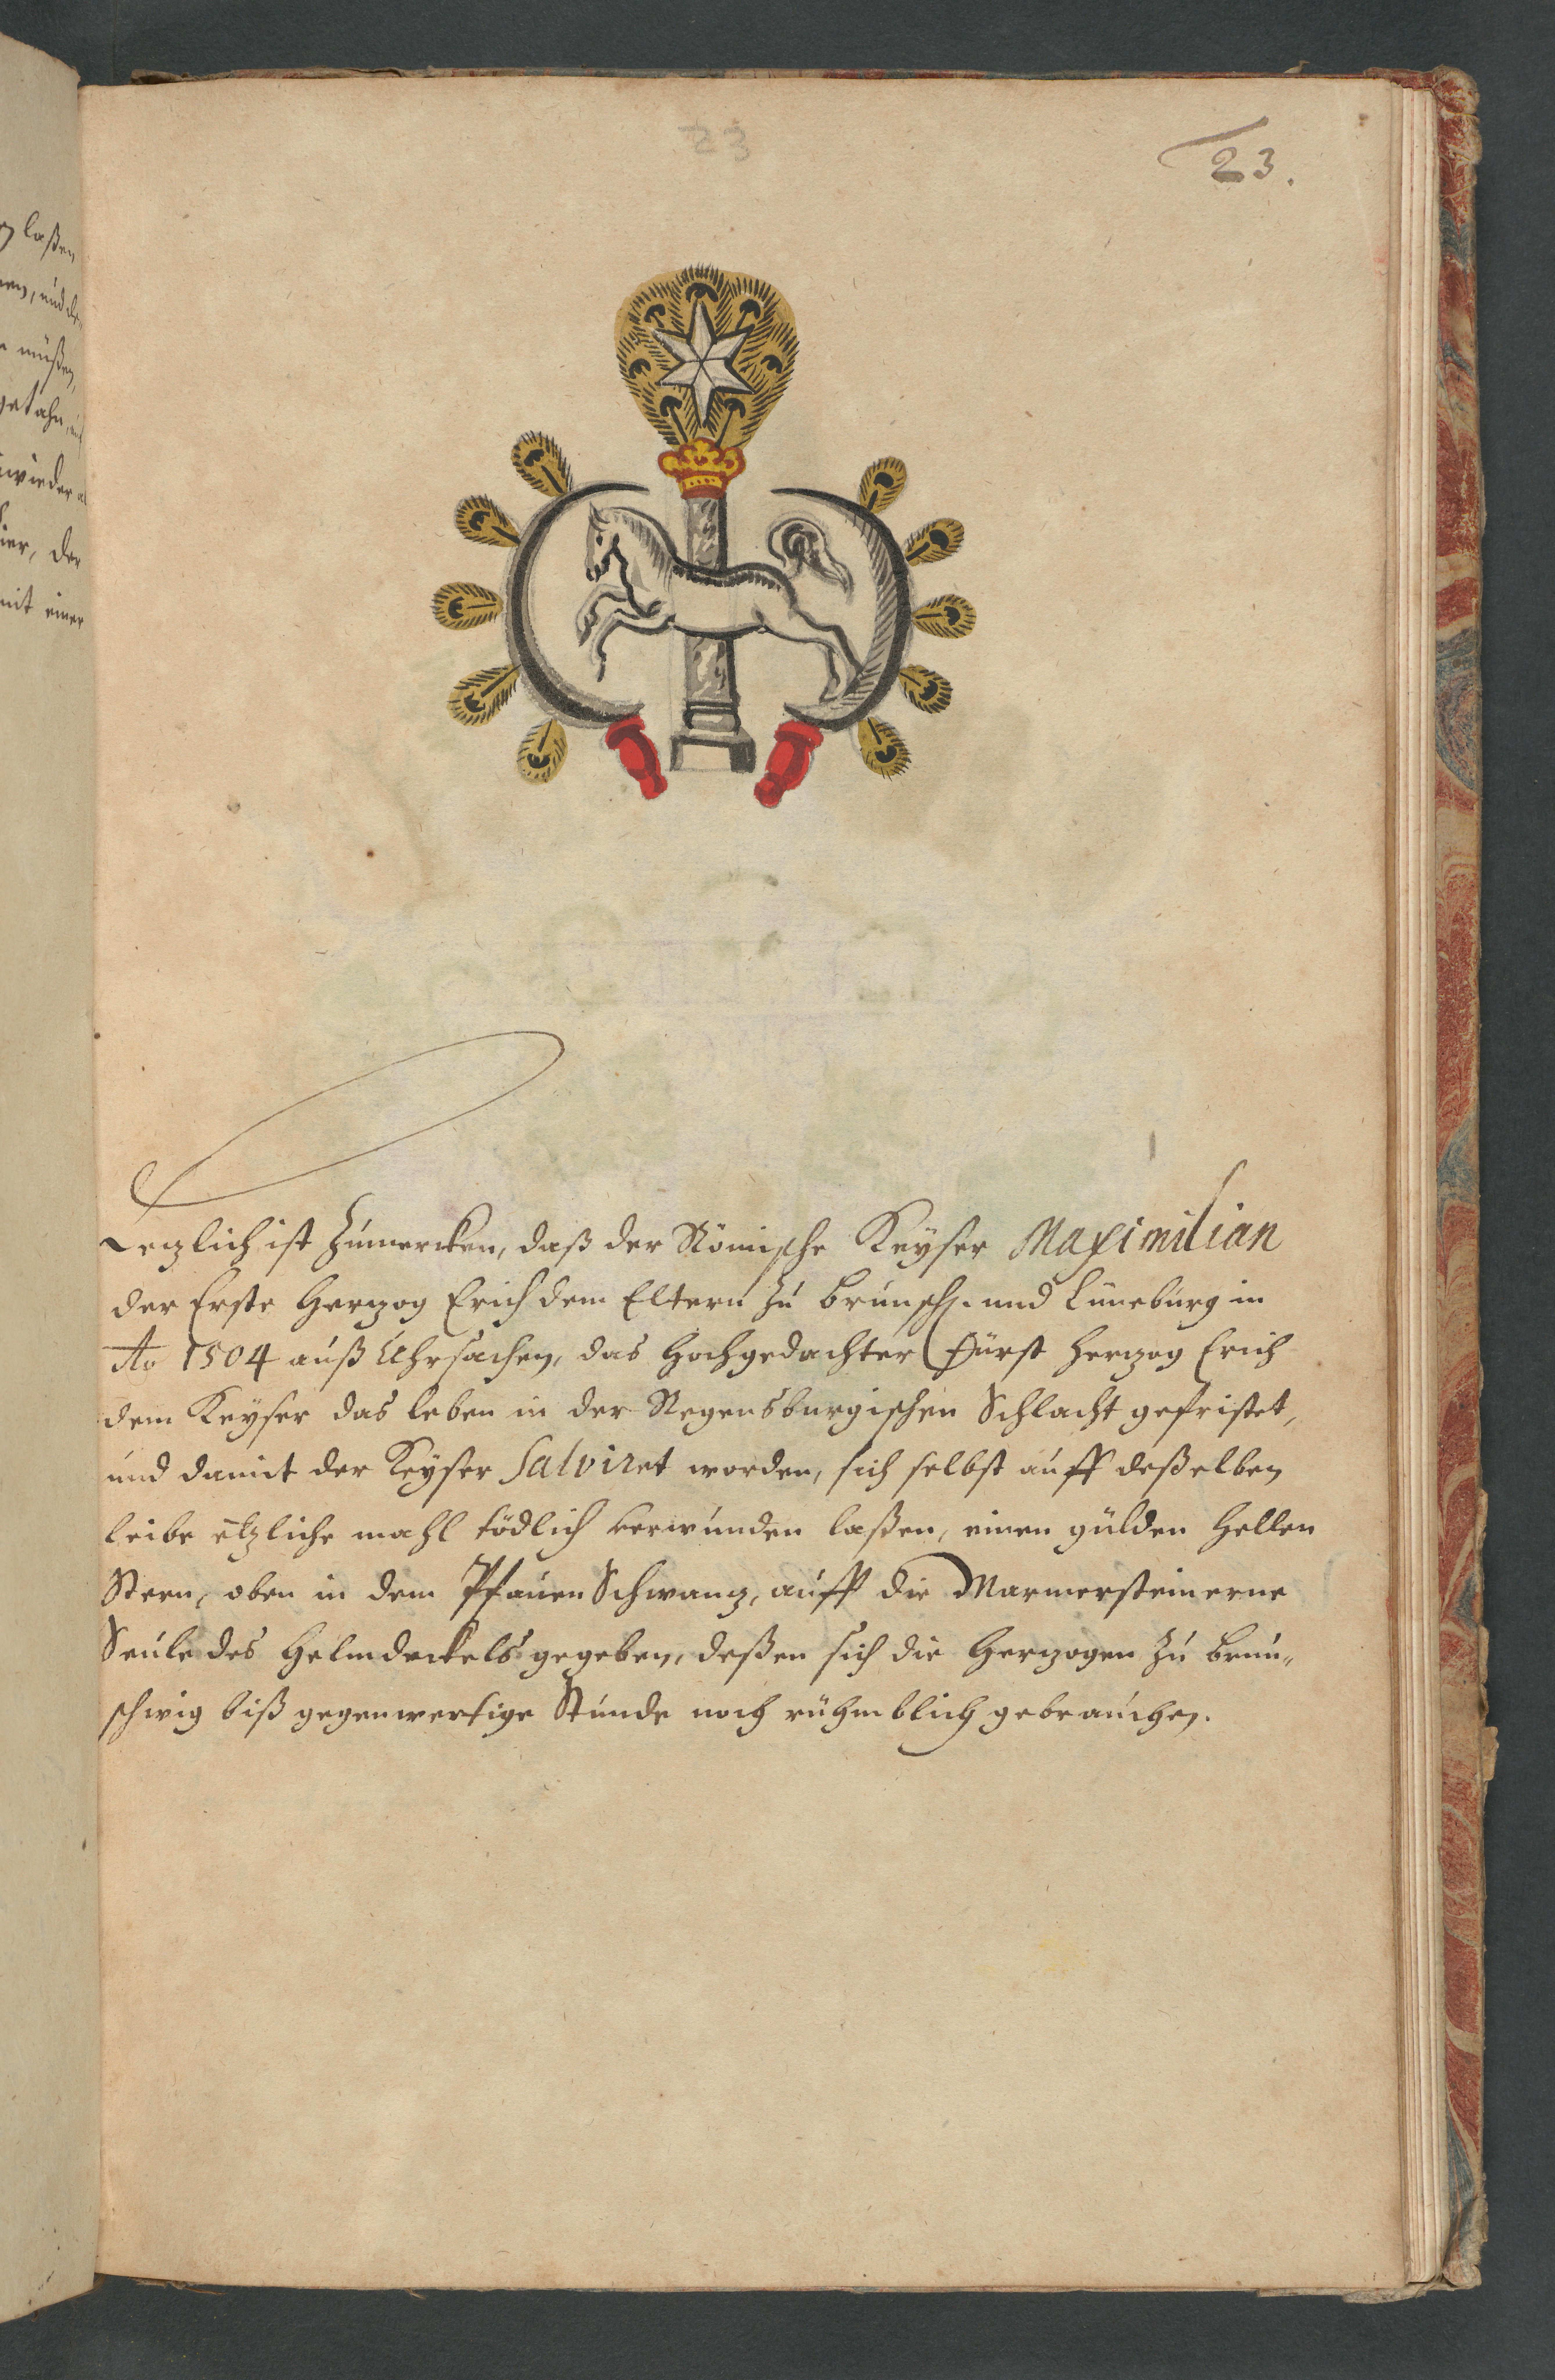 23.
Letzlich ist Zumercken, daß der Römische Keyser Maximilian
der Erste Hertzog Erich dem Eltern zu Brunsch. und Lüneburg in
Ao 1504 auß Uhrsachen, das Hochgedachter Fürst Hertzog Erich
dem Keyser das leben in der Regensburgischen Schlacht gefristet,
und damit der Keyser Salviret worden, sich selbst auff deßelben
leibe etzliche mahl tödlich verwunden laßen, einen gülden Hellen
Stern, oben in dem Pfauen Schwantz, auff die Marmersteinerne
Seule des Helmdeckels gegeben, deßen sich die Hertzogen zu Brun-
schwig biß gegenwertige Stunde noch rühmblich gebrauchen.
laßen
müßen,
gethan
wieder
der
mit einer